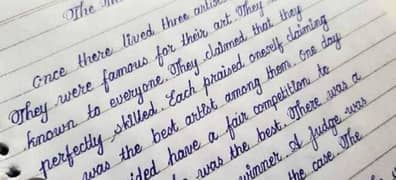 The
Once there lived three artis
They were famous for their art. They
known to everyone. They claimed that they
perfectly skilled. Each praised oneself claiming
was the best artist among them. One day
ided have a fair competition to
was the best. There was a
winner. A judge was
the case. The